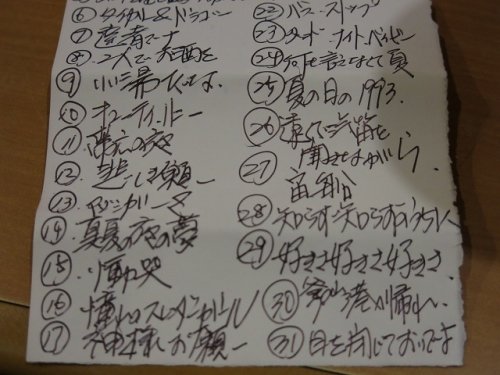 ⑥ タイガー&ドラゴン
⑦ 達者でナ
⑧ 二人でお酒を
⑨ いい湯だな
⑩ キューティーハニー
⑪ の夜
⑫ 悲しき願い
⑬ マジンガーZ
⑭ 真夏の夜の夢
⑮ 慟哭
⑯ 憧れのスレンダーガール
⑰ 神様お願い
㉒ バス・ストップ
㉓ グッド・ナイト・ベイビー
㉔ 何も言えなくて夏
㉕ 夏の日の1993.
㉖ 遠くで汽笛を
聞きながら
㉗ 宙船
㉘ 知らず知らずのうちに
㉙ 好きさ好きさ好きさ
㉚ 釜山港へ帰れ
㉛ 目を閉じておいでよ